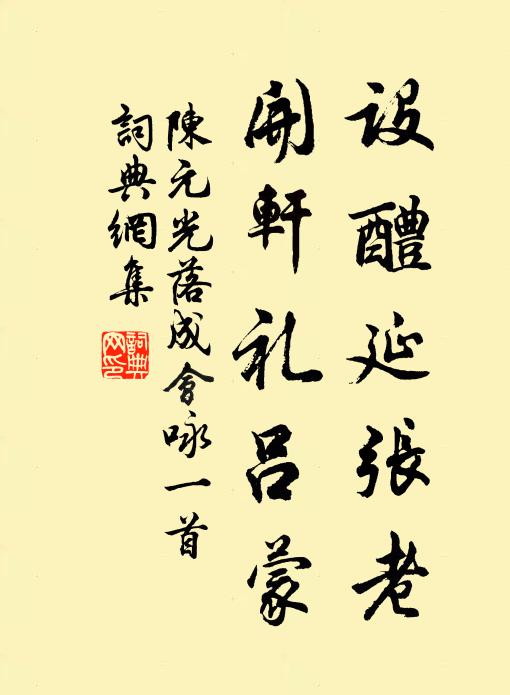 設醴延張老
開軒礼呂蒙
陳元光落成會咏一首
詞典網集
詞典網印